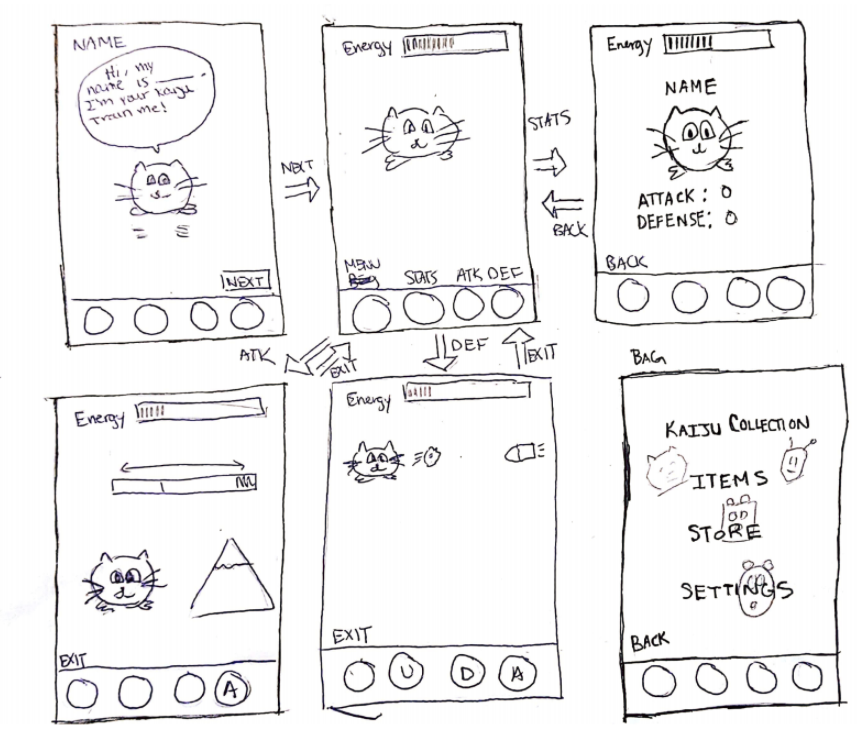 NAME
Hi, my
name is ____.
I'm your kaiju
Train me!
NEXT
NEXT
Energy
MENU
STATS ATK DEF
STATS
BACK
Energy
NAME
ATTACK: 0
DEFENSE: 0
BACK
ATK
EXIT
DEF
EXIT
Energy
EXIT
A
Energy
EXIT
U D A
BAG
KAIJU COLLECTION
ITEMS
STORE
SETTINGS
BACK